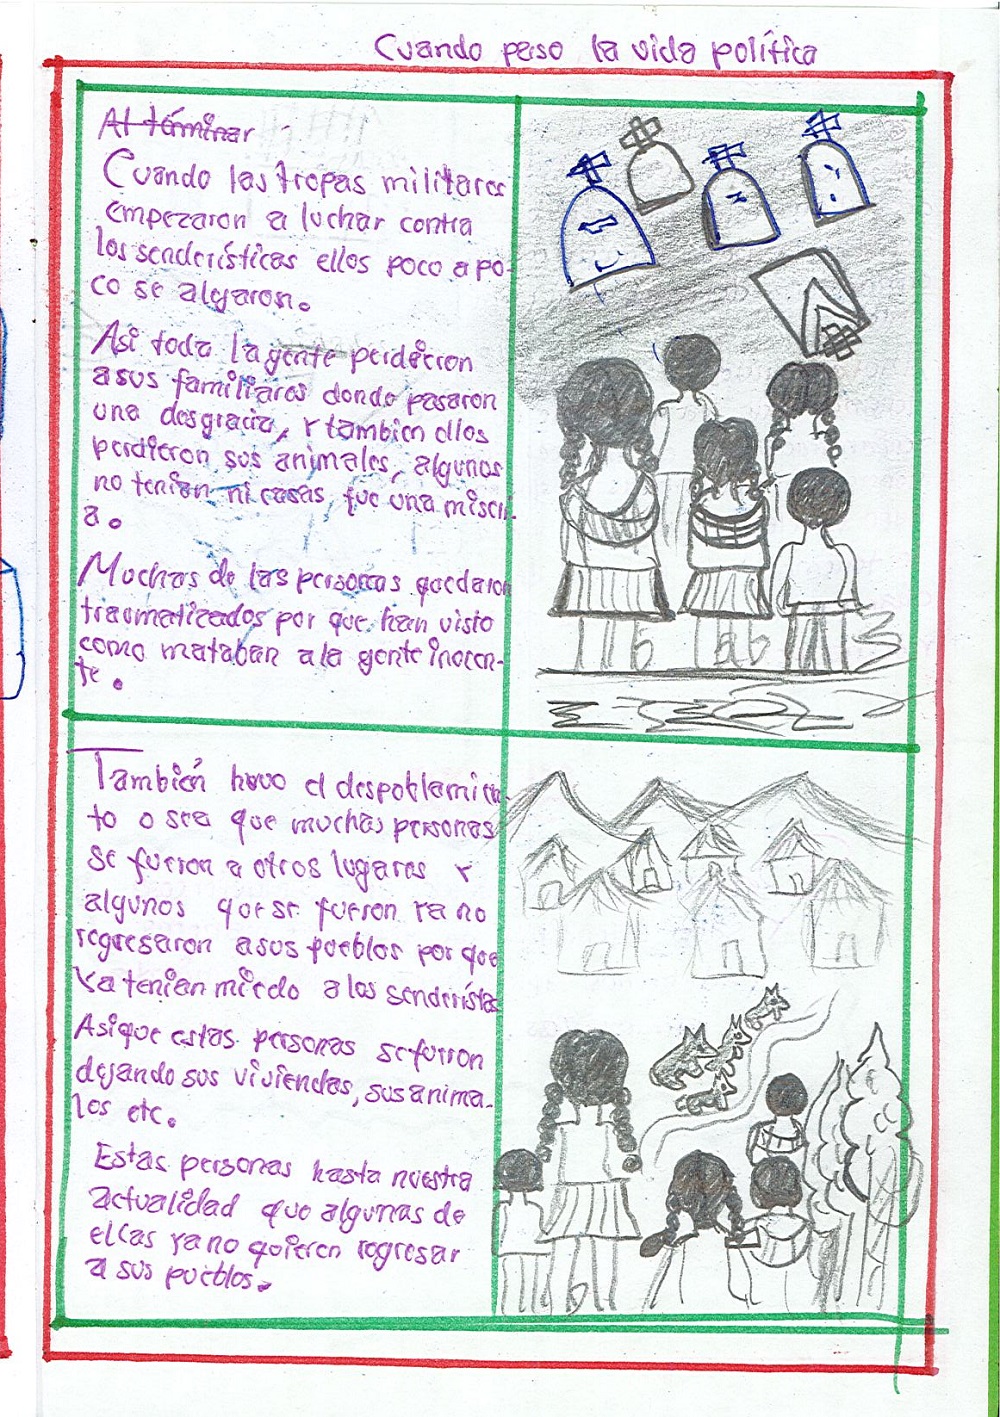 Cuando paso la vida política
Al términar
Cuando las tropas militares
empezaron a luchar contra
los senderísticas ellos poco a po-
co se alejaron.
Asi toda la gente perdieron
a sus familiares donde pasaron
una desgracia, y tambien ellos
perdieron sus animales, algunos
no tenian ni casas fue una miseri-
a.
Muchas de las personas quedaron
traumatizados por que han visto
como mataban a la gente inocen-
te.
También huvo el despoblamien-
to o sea que muchas personas
se fueron a otros lugares y
algunos que se fueron ya no
regresaron a sus pueblos por que
ya tenian miedo a los senderistas
Asique estas personas se fueron
dejando sus viviendas, sus anima-
les etc.
Estas personas hasta nuestra
actualidad que algunas de
ellas ya no quieren regresar
a sus pueblos.